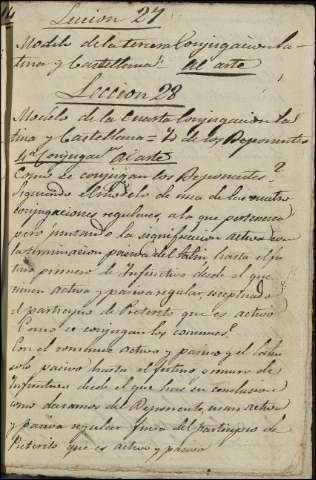 Leccion 27
Modelo de la tercera Conjugacion La-
tina y Castellana. Al arte
Leccion 28
Modelo de la Cuarta Conjugacion La
tina y Castellana = Y de los Deponentes
4ª Conjugacⁿ Al arte
Como se conjugan los Deponentes?
Siguiendo el modelo de una de las cuatro
conjugaciones regulares, a la que pertenezca
pero juntando la significacion activa con
la terminacion pasiva del latin, hasta el fu
turo primero de Infinitivo desde el que
tienen activa y pasiva regular, esceptuado
el participio de Preterito que es activo
Como se conjugan los comunes?
Con el romance activo y pasivo y el latin
solo pasivo hasta el futuro primero de
Infinitivo desde el que hasta su conclusion
como diximos del Deponente, usan activa
y pasiva regular fuera del Participio de
Preterito que es activo y pasivo